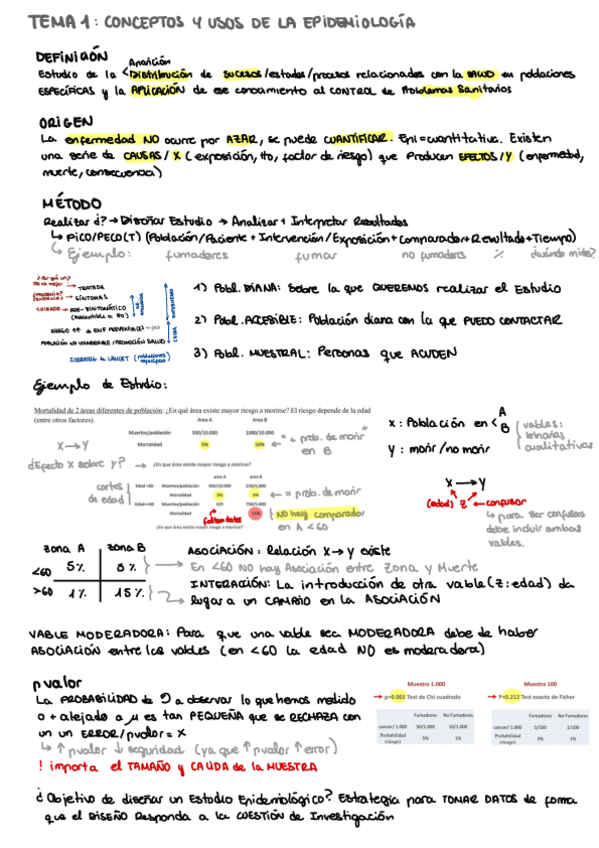 TEMA 1: CONCEPTOS Y USOS DE LA EPIDEMIOLOGÍA
DEFINICIÓN
Aparición
Estudio de la < Distribución de sucesos/estados/procesos relacionados con la SALUD en poblaciones
ESPECÍFICAS y la APLICACIÓN de ese conocimiento al CONTROL de Problemas Sanitarios
ORIGEN
La enfermedad NO ocurre por AZAR, se puede CUANTIFICAR. Epi = cuantitativa. Existen
una serie de CAUSAS / X (exposición, tto, factor de riesgo) que Producen EFECTOS/Y (enfermedad,
muerte, consecuencia)
MÉTODO
Realizar ¿? → Diseñar Estudio → Analizar + Interpretar Resultados
↳ PICO/PECO(T) (Población/Paciente + Intervención/Exposición + Comparador + Resultado + Tiempo)
↳ Ejemplo: fumadores fumar no fumadores % ¿cuándo mides?
TRATADA
SÍNTOMAS
1) Pobl. DIANA: Sobre la que QUEREMOS realizar el Estudio
2) Pobl. ACCESIBLE: Población diana con la que PUEDO CONTACTAR
3) Pobl. MUESTRAL: Personas que ACUDEN
ICEBERG de LANCET (poblaciones específicas)
Ejemplo de Estudio:
Mortalidad de 2 áreas diferentes de población: ¿En qué área existe mayor riesgo a morirse? El riesgo depende de la edad
(entre otros factores).
Area A Area B
Muertos/población 500/10.000 1000/10.000
Mortalidad 5% 10%
"+ prob. de morir" en B
x: Población en < A B
y: morir/no morir
vables: binarias cualitativas
X → Y
¿Efecto X sobre Y?
¿En que área existe mayor riesgo a morirse?
area A area B
cortes de edad
Edad <60 Muertos/población
Mortalidad 5% 5%
= prob. de morir
Edad >=60 Muertos/población 0/0
Mortalidad 15%
faltan datos
NO hay comparador
en A <60
¿En que área existe mayor riesgo a morirse?
X → Y
(edad) Z ← confusor
↳ para ser confusora
debe incluir ambas
vables.
zona A zona B
<60 5% 5%
>60 1% 15%
ASOCIACIÓN: Relación X → Y existe
En <60 NO hay Asociación entre Zona y Muerte
INTERACCIÓN: La introducción de otra vable (Z: edad) da
lugar a un CAMBIO en la ASOCIACIÓN
VABLE MODERADORA: Para que una vable sea MODERADORA debe de haber
ASOCIACIÓN entre las vables (en <60 la edad NO es moderadora)
p valor
La PROBABILIDAD de observar lo que hemos medido
o + alejado a μ es tan PEQUEÑA que se RECHAZA con
un un ERROR/pvalor = X
↳ ↑ pvalor ↓ seguridad (ya que ↑ pvalor ↑ error)
! importa el TAMAÑO y CALIDA de la MUESTRA
Muestra 1.000
→ p<0.001 Test de Chi cuadrado
Fumadores No Fumadores
cancer/ 1.000 50/1.000 10/1.000
Probabilidad (riesgo) 5% 1%
Muestra 100
→ P=0.212 Test exacto de Fisher
Fumadores No Fumadores
cancer/ 1.000 5/100 1/100
Probabilidad (riesgo) 5% 1%
¿Objetivo de diseñar un Estudio Epidemiológico? Estrategia para TOMAR DATOS de forma
que el DISEÑO Responda a la CUESTIÓN de Investigación